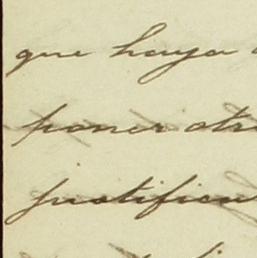 que haya
poner otr
justifica